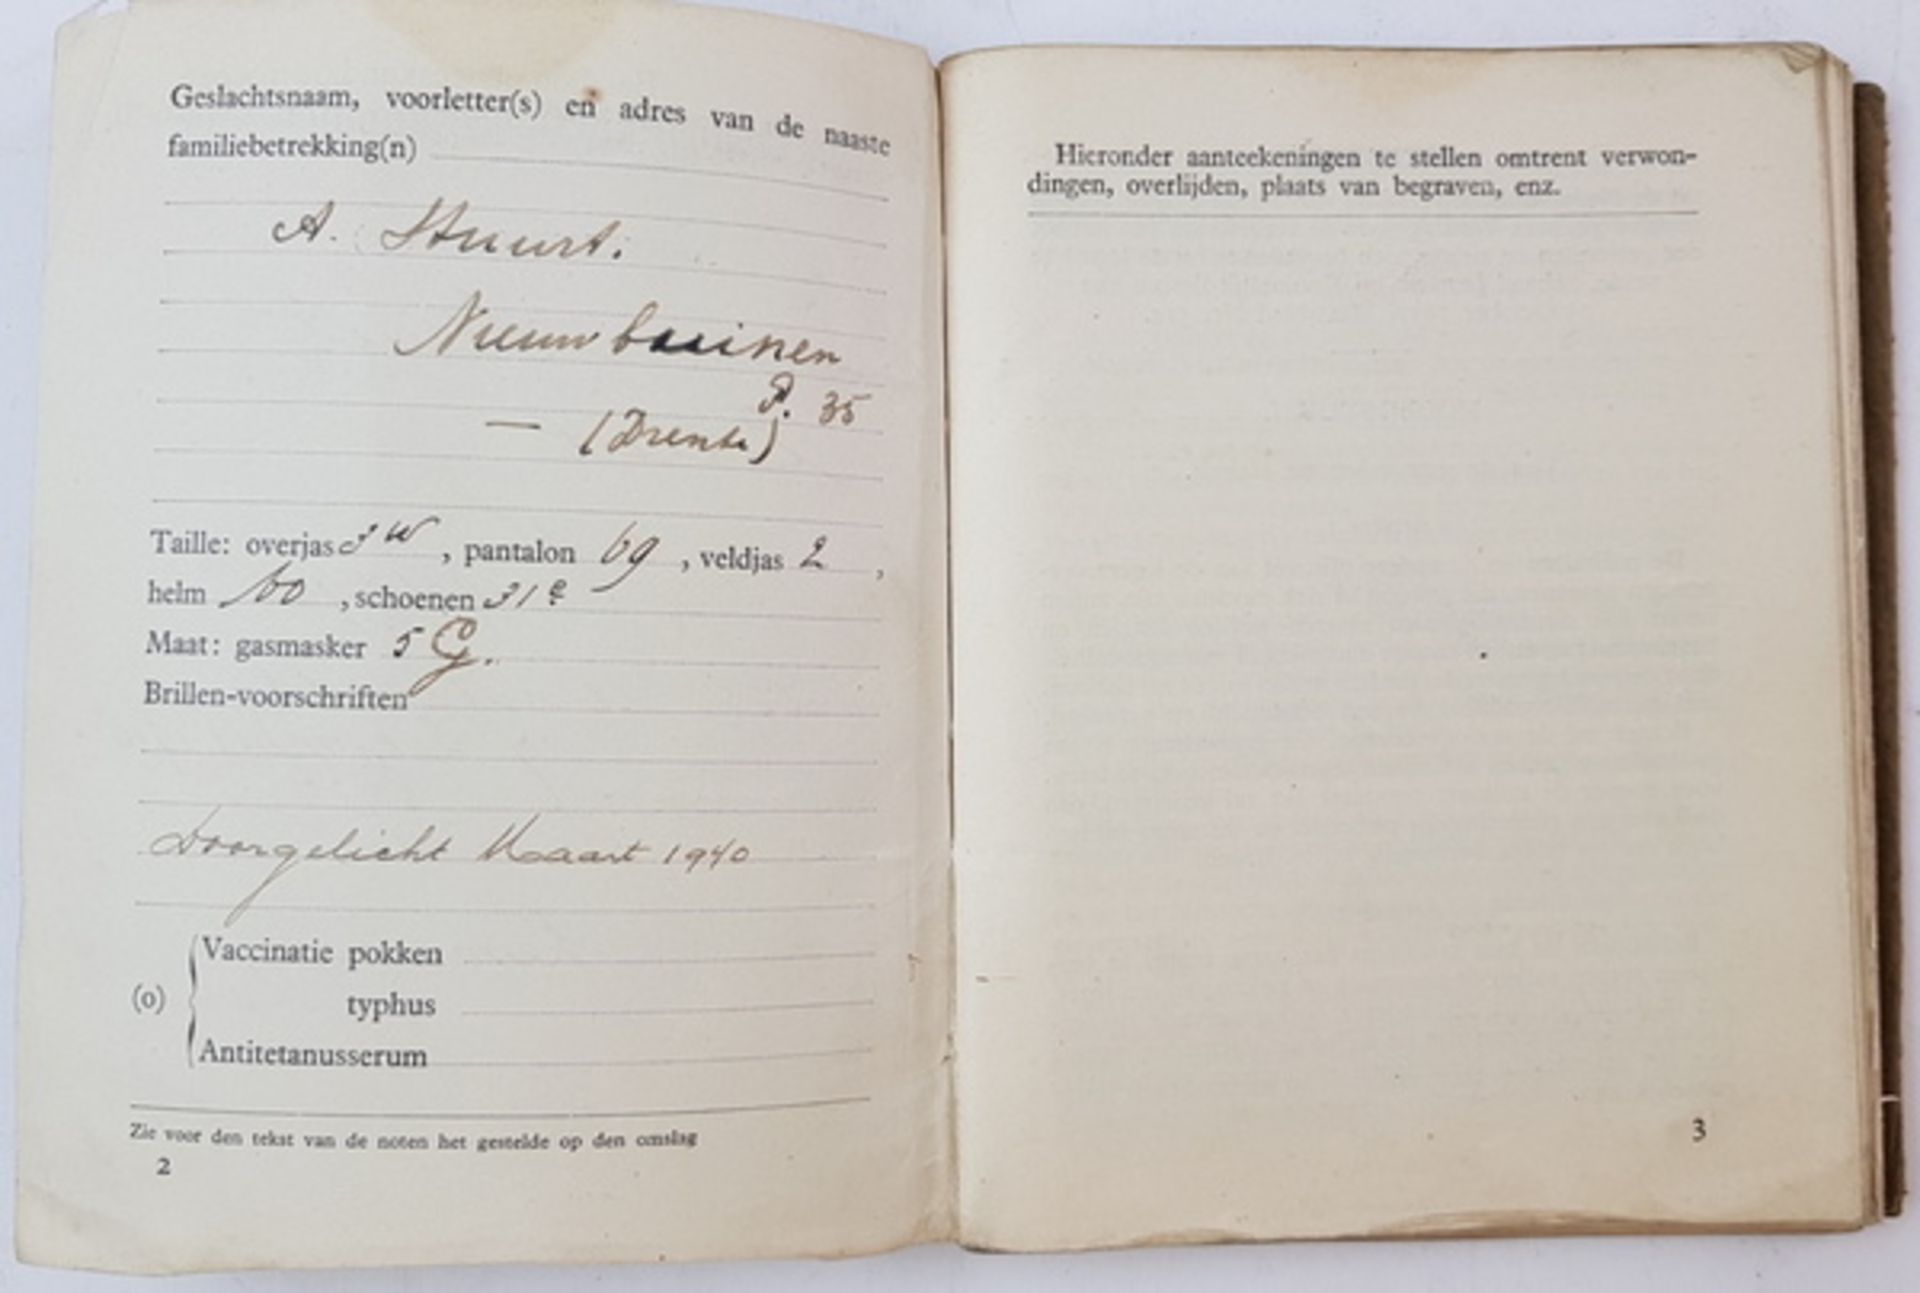 Geslachtsnaam, voorletter(s) en adres van de naaste
familiebetrekking(n)
A. Stuurt.
Nieuw buinen
P. 35
— (Drente)
Taille: overjas 3 W, pantalon 69, veldjas 2,
helm 60, schoenen 31
Maat: gasmasker 5 G.
Brillen-voorschriften
Doorgelicht Maart 1940
Vaccinatie pokken
(o) typhus
Antitetanusserum
Zie voor den tekst van de noten het gestelde op den omslag
2
Hieronder aanteekeningen te stellen omtrent verwon-
dingen, overlijden, plaats van begraven, enz.
3